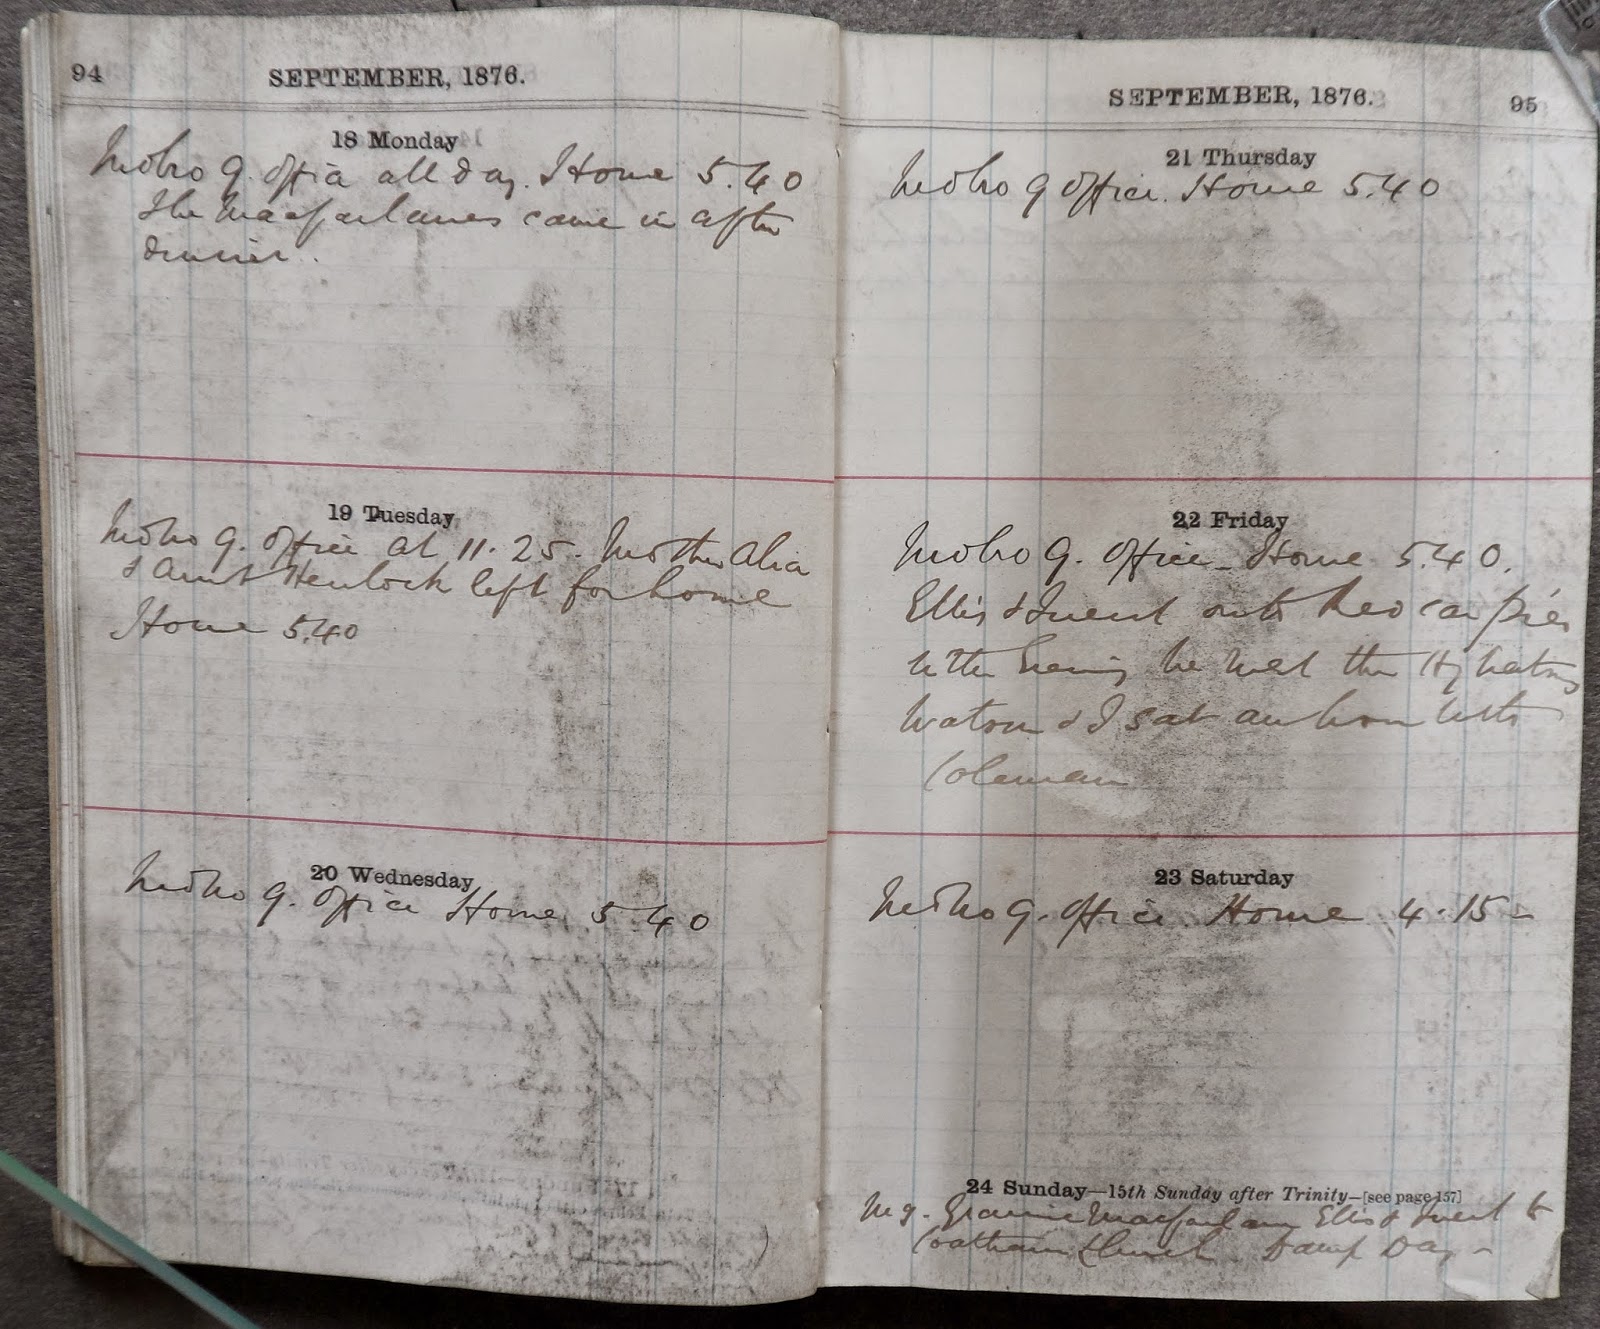 94
SEPTEMBER, 1876.
18 Monday
9. Office all day. Home 5.40
The Macfarlanes came in after
dinner.
19 Tuesday
9. Office at 11.25. Mother Alia
& Aunt Henlock left for home
Home 5.40
20 Wednesday
9. Office Home 5.40
SEPTEMBER, 1876.
95
21 Thursday
9 Office. Home 5.40
22 Friday
9. Office Home 5.40.
Ellis & I went
he met the
Watson & I sat an hour with
Coleman
23 Saturday
9. Office Home 4.15
24 Sunday—15th Sunday after Trinity—[see page 157]
M 9. Macfarlane Ellis & I went to
Coatham Church Damp Day